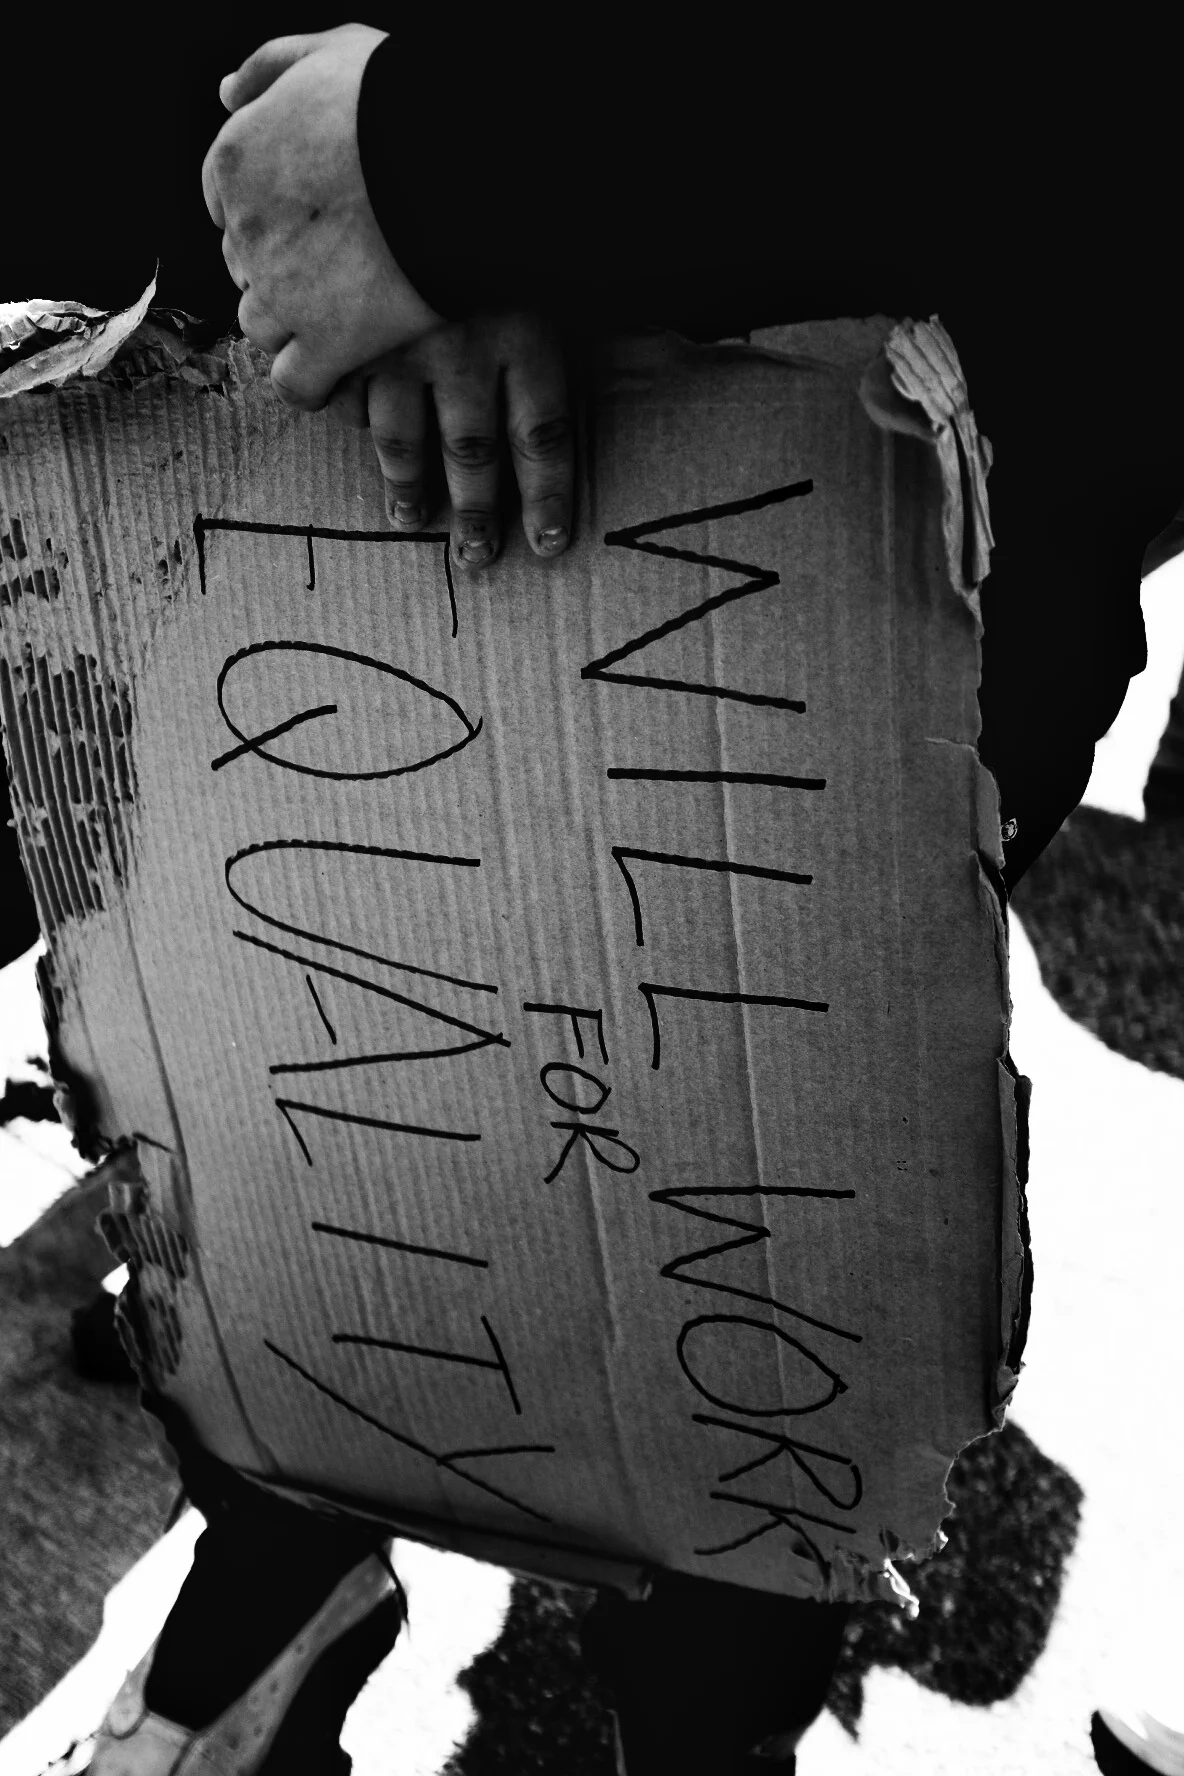 WILL WORK
FOR
EQUALITY